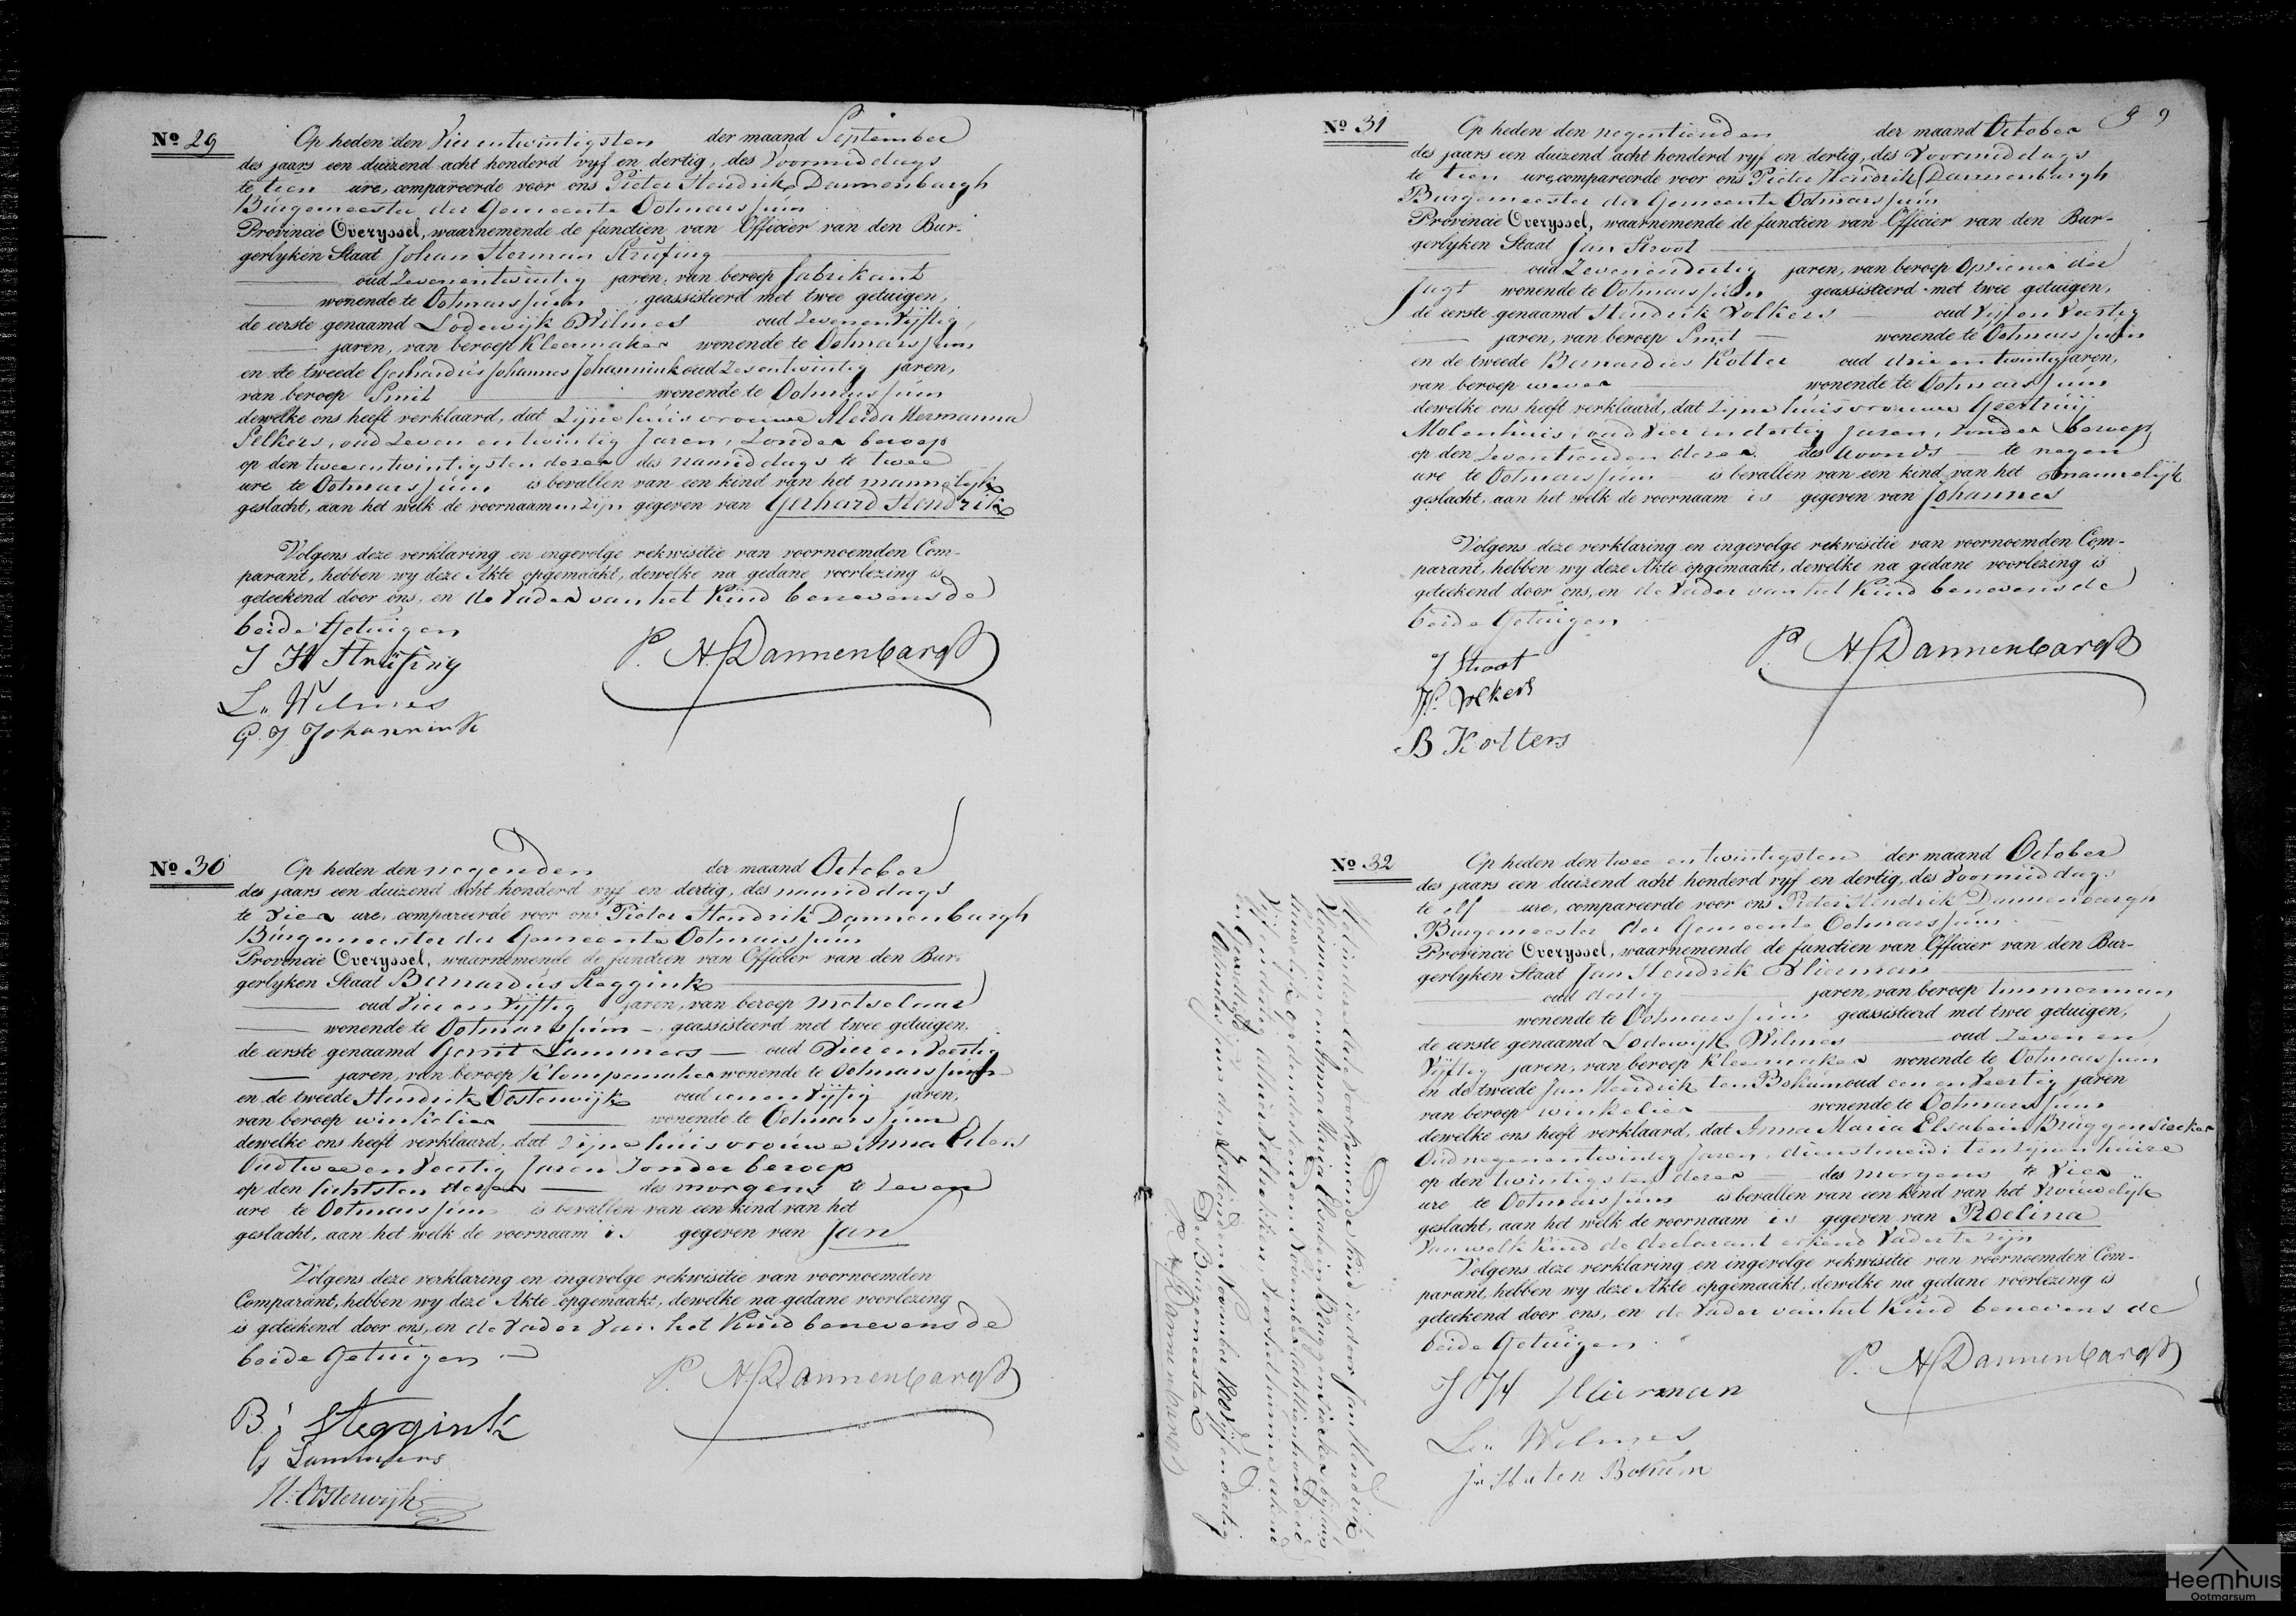 Nº 29 Op heden den Vier en twintigsten der maand September
des jaars een duizend acht honderd vyf en dertig, des Voormiddags
te tien ure, compareerde voor ons Pieter Hendrik Dannenbargh
Burgemeester der Gemeente Ootmarssum
Provincie Overyssel, waarnemende de functien van Officier van den Bur-
gerlyken Staat Johan Herman Strüfing
oud Zevenentwintig jaren, van beroep fabrikant
wonende te Ootmarssum geassisteerd met twee getuigen,
de eerste genaamd Lodewijk Wilmes oud Zevenenvijftig
jaren, van beroep Kleermaker wonende te Ootmarssum
en de tweede Gerhardus Johannes Johannink oud Zesentwintig jaren,
van beroep Smit wonende te Ootmarssum
dewelke ons heeft verklaard, dat Zijne huisvrouwe Aleida Hermanna
Selkers, oud Zeven en twintig Jaren, Zonder beroep
op den twee en twintigsten dezer des namiddags te twee
ure te Ootmarssum is bevallen van een kind van het mannelijk
geslacht, aan het welk de voornaamen zijn gegeven van Gerhard Hendrik
Volgens deze verklaring en ingevolge rekwisitie van voornoemden Com-
parant, hebben wy deze Akte opgemaakt, dewelke na gedane voorlezing is
geteekend door ons, en de Vader van het Kind benevens de
beide Getuigen
J H Strüfing
P. H. Dannenbargh
L. Wilmes
G. J. Johannink
Nº 30 Op heden den negenden der maand October
des jaars een duizend acht honderd vyf en dertig, des namiddags
te Vier ure, compareerde voor ons Pieter Hendrik Dannenbargh
Burgemeester der Gemeente Ootmarssum
Provincie Overyssel, waarnemende de functien van Officier van den Bur-
gerlyken Staat Bernardus Steggink
oud Vier en Vijftig jaren, van beroep Metselaar
wonende te Ootmarssum geassisteerd met twee getuigen,
de eerste genaamd Gerrit Lammers oud Vier en Veertig
jaren, van beroep Klompmaker wonende te Ootmarssum
en de tweede Hendrik Oosterwijk oud een en Vijftig jaren,
van beroep winkelier wonende te Ootmarssum
dewelke ons heeft verklaard, dat Zijne huisvrouwe Anna
Oud twee en Veertig Jaren Zonder beroep
op den achtsten dezer des morgens te Zeven
ure te Ootmarssum is bevallen van een kind van het
geslacht, aan het welk de voornaam is gegeven van Jan
Volgens deze verklaring en ingevolge rekwisitie van voornoemden
Comparant, hebben wy deze Akte opgemaakt, dewelke na gedane voorlezing
is geteekend door ons, en de Vader van het Kind benevens de
beide Getuigen
P. H. Dannenbargh
B. Steggink
G Lammers
H. Oosterwijk
9
Nº 31 Op heden den negentienden der maand October
des jaars een duizend acht honderd vyf en dertig, des Voormiddags
te tien ure, compareerde voor ons Pieter Hendrik Dannenbargh
Burgemeester der Gemeente Ootmarssum
Provincie Overyssel, waarnemende de functien van Officier van den Bur-
gerlyken Staat Jan Stroot
oud Zevenendertig jaren, van beroep Opziener der
Jagt wonende te Ootmarssum geassisteerd met twee getuigen,
de eerste genaamd Hendrik Volkers oud Vijf en Veertig
jaren, van beroep Smit wonende te Ootmarssum
en de tweede Bernardus Kolter oud drie en twintig jaren,
van beroep wever wonende te Ootmarssum
dewelke ons heeft verklaard, dat zijne huisvrouwe Geertruij
Molenhuis, oud Vier en dertig Jaren, Zonder beroep
op den Zeventienden dezer des avonds te negen
ure te Ootmarssum is bevallen van een kind van het mannelijk
geslacht, aan het welk de voornaam is gegeven van Johannes
Volgens deze verklaring en ingevolge rekwisitie van voornoemden Com-
parant, hebben wy deze Akte opgemaakt, dewelke na gedane voorlezing is
geteekend door ons, en de Vader van het Kind benevens de
beide Getuigen
P. H. Dannenbargh
J Stroot
H. Volkers
B Kolters
Nº 32 Op heden den twee en twintigsten der maand October
des jaars een duizend acht honderd vyf en dertig, des Voormiddags
te elf ure, compareerde voor ons Pieter Hendrik Dannenbargh
Burgemeester der Gemeente Ootmarssum
Provincie Overyssel, waarnemende de functien van Officier van den Bur-
gerlyken Staat Jan Hendrik
oud dertig jaren, van beroep timmerman
wonende te Ootmarssum geassisteerd met twee getuigen,
de eerste genaamd Lodewijk Wilmes oud Zeven en
Vijftig jaren, van beroep Kleermaker wonende te Ootmarssum
en de tweede Jan Hendrik ten Bokum oud een en Veertig jaren
van beroep winkelier wonende te Ootmarssum
dewelke ons heeft verklaard, dat Anna Maria Elsabein Bruggensieeker
Oud negenentwintig Jaren, dienstmeid, ten zijnen huize
op den twintigsten dezer des morgens te Vier
ure te Ootmarssum is bevallen van een kind van het Vrouwelijk
geslacht, aan het welk de voornaam is gegeven van Roelina
Van welk Kind de declarant erkend Vader te zijn
Volgens deze verklaring en ingevolge rekwisitie van voornoemden Com-
parant, hebben wy deze Akte opgemaakt, dewelke na gedane voorlezing is
geteekend door ons, en de Vader van het Kind benevens de
beide Getuigen
P. H. Dannenbargh
J H
L. Wilmes
J. H ten Bokum
Kind is door Jan Hendrik
en Anna Maria Elsabein Bruggensieeker, bij hun
huwelijk op den November achttienhonderd
Vijf en dertig erkend
en Gewettigd
Ootmarssum den November 1800 Vijf en dertig
De Burgemeester
P. H. Dannenbargh
Heemhuis
Ootmarsum